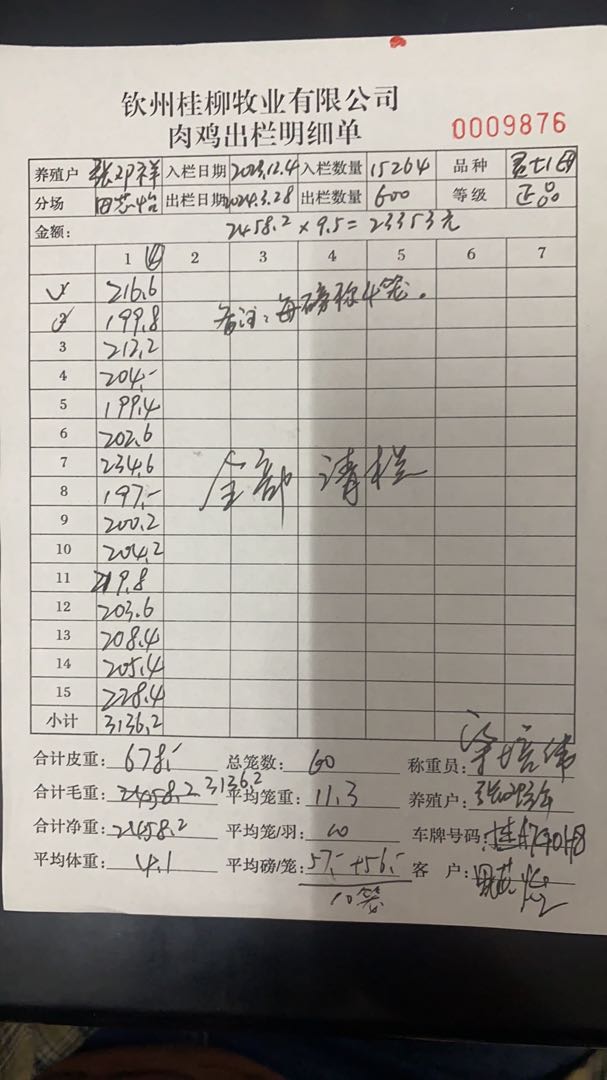 钦州桂柳牧业有限公司
肉鸡出栏明细单
0009876
养殖户 入栏日期 2023.12.4 入栏数量 15264 品种
分场 出栏日期 2024.3.28 出栏数量 600 等级 正品
金额: 2458.2×9.5=23353元
1 ④ 2 3 4 5 6 7
1 216.6
2 199.8 备注:每磅称4笼.
3 212.2
4 204.-
5 199.4
6 202.6
7 234.6 全部清栏
8 197.-
9 200.2
10 204.2
11 219.8
12 203.6
13 208.4
14 205.4
15 228.4
小计 3136.2
合计皮重: 678.- 总笼数: 60 称重员:
合计毛重: 2458.2 3136.2 平均笼重: 11.3 养殖户:
合计净重: 2458.2 平均笼/羽: 10 车牌号码:
平均体重: 4.1 平均磅/笼: 57.-+56.- 客 户:
10笼